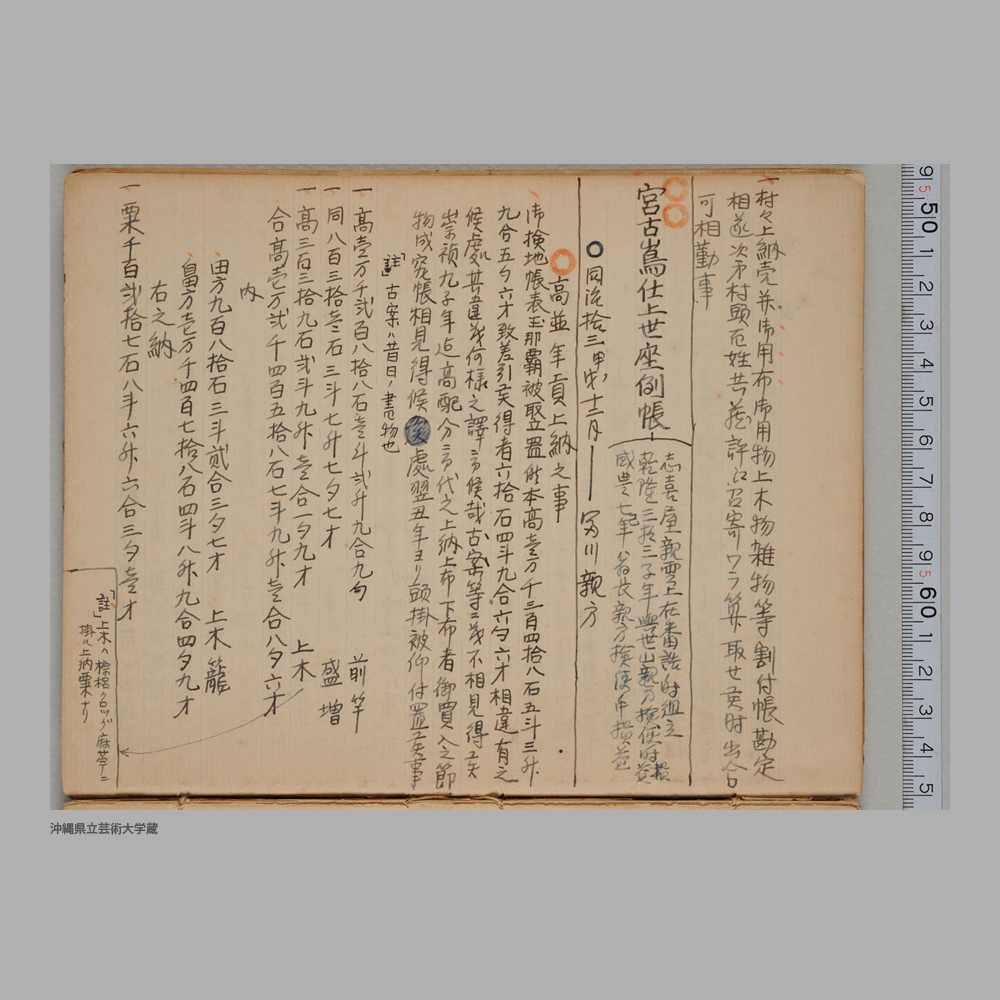 一村々上納売并御用布御用物上木物雑物等割付帳勘定
相遂次第村頭百姓共蔵許江召寄ワラ算取せ其時出合
可相勤事
宮古嶌仕上世座例帳
志喜屋親雲上在番詰時組立
乾隆三拾三子年與世山親方検使時損益
咸豊七年翁長親方検使中損益
同治拾三甲戌十二月 冨川親方
高並年貢上納之事
御検地帳表玉那覇被取置候本高壱万千三百四拾八石五斗三升
九合五夕六才致差引矣得者六拾石四斗九合六勺六才相違有之
候處其違義何様之譯ニ而候哉古案等ニ茂不相見得矣
崇禎九子年迠高配分ニ而代之上納上布下布者御買入之節
物成究帳相見得候處翌丑年ヨリ頭掛被仰付置矣事
「註」古案ハ昔日ノ書物也
一高壱万千弐百八拾八石壱斗弐升九合九勺 前竿
一同八百三拾壱石三斗七升七夕七才 盛増
一高三百三拾九石弐斗九升壱合一夕九才 上木
合高壱万弐千四百五拾八石七斗九升壱合八夕六才
内
田方九百八拾石三斗貳合三夕七才 上木籠
畠方壱万千四百七拾八石四斗八升九合四夕九才
右之納
一粟千百弐拾七石八斗六升六合三夕壱才
「註」上木ハ棕梠クロツグ麻苧ニ
掛ル上納粟ナリ
9 5 50 1 2 3 4 5 6 7 8 9 5 60 1 2 3 4 5
沖縄県立芸術大学蔵